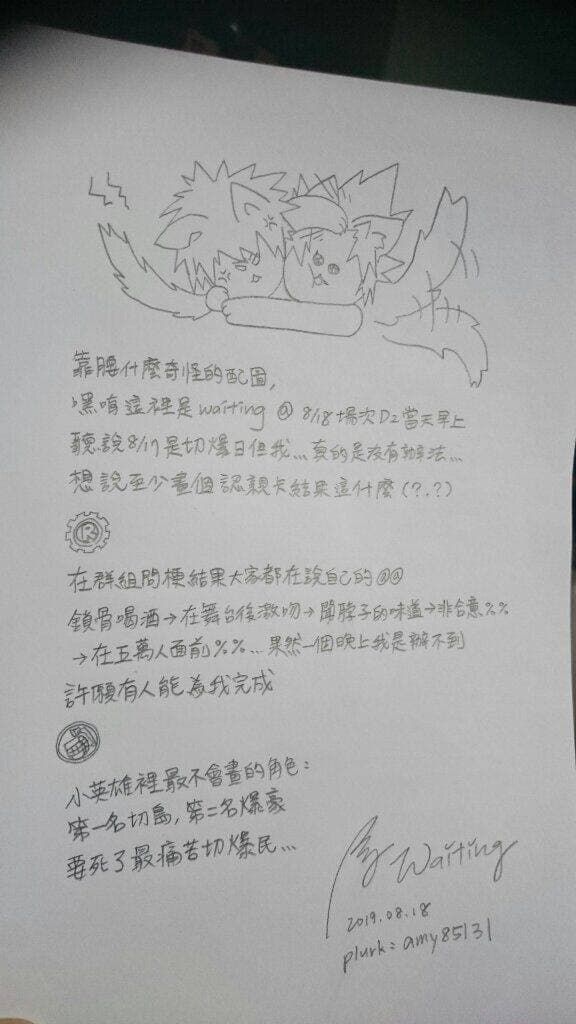 靠腰什麼奇怪的配圖,
嘿唷這裡是waiting @ 8/18場次D2當天早上
聽說8/17是切爆日但我...真的是沒有辦法...
想說至少畫個認親卡結果這什麼(?.?)
R
在群組問梗結果大家都在說自己的@@
鎖骨喝酒→在舞台後激吻→聞脖子的味道→非合意%%
→在五萬人面前%%...果然一個晚上我是辦不到
許願有人能為我完成
小英雄裡最不會畫的角色:
第一名切島,第二名爆豪
要死了最痛苦切爆民...
Waiting
2019.08.18
plurk: amy85131